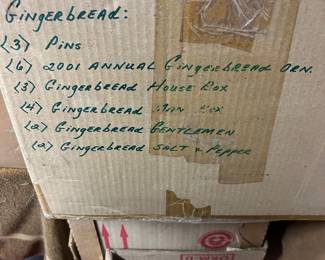 Gingerbread:
(3) Pins
(6) 2001 Annual Gingerbread Orn.
(3) Gingerbread House Box
(4) Gingerbread Man Box
(2) Gingerbread Gentlemen
(2) Gingerbread Salt & Pepper